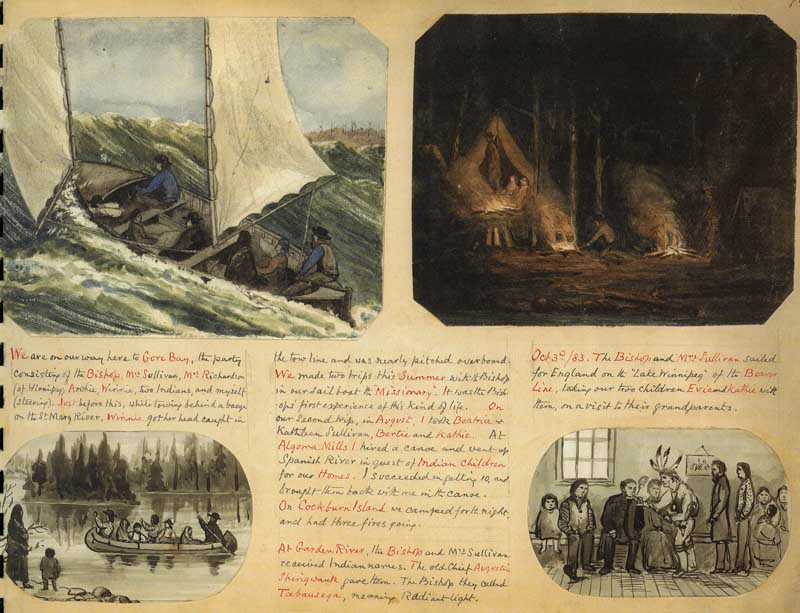 We are on our way here to Gore Bay, the party
consisting of the Bishop, Mrs Sullivan, Mrs Richardson
(of Winnipeg, Archie, Winnie, two Indians, and myself
(steering). Just before this, while towing behind a barge
on the St Mary River, Winnie got her head caught in
the tow line and was nearly pitched overboard.
We made two trips this Summer with the Bishop
in our sail boat the "Missionary". It was the Bish-
ops' first experience of this kind of life. On
our second trip, in August, I took Beatrice &
Kathleen Sullivan, Bertie and Kathie. At
Algoma Mills I hired a canoe and went up
Spanish River in quest of Indian Children
for our Homes. I succeeded in getting 10, and
brought them back with me in the canoe.
On Cockburn Island we camped for the night
and had three fires going.
At Garden River, the Bishop and Mrs Sullivan
received Indian names. The old Chief Augustin
Shingwauk gave them. The Bishop they called
Tabausega, meaning Radiant light.
Oct 3d /83. The Bishop and Mrs Sullivan sailed
for England on the "Lake Winnipeg" of the Beaver
Line, taking our two children Evie and Kathie with
them, on a visit to their grandparents.